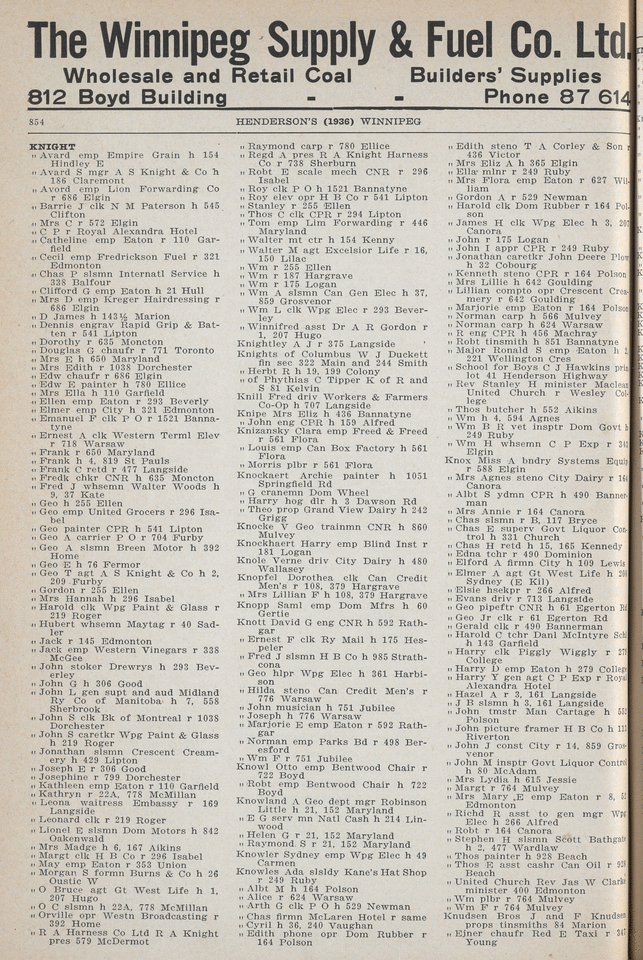 The Winnipeg Supply & Fuel Co. Ltd.
Wholesale and Retail Coal Builders' Supplies
812 Boyd Building - - Phone 87 614
854 HENDERSON'S (1936) WINNIPEG
KNIGHT
„ Avard emp Empire Grain h 154
Hindley E
„ Avard S mgr A S Knight & Co h
186 Claremont
„ Avord emp Lion Forwarding Co
r 686 Elgin
„ Barrie J clk N M Paterson h 545
Clifton
„ Mrs C r 572 Elgin
„ C P r Royal Alexandra Hotel
„ Catheline emp Eaton r 110 Gar-
field
„ Cecil emp Fredrickson Fuel r 321
Edmonton
„ Chas P slsmn Internatl Service h
338 Balfour
„ Clifford G emp Eaton h 21 Hull
„ Mrs D emp Kreger Hairdressing r
686 Elgin
„ D James h 143½ Marion
„ Dennis engrav Rapid Grip & Bat-
ten r 541 Lipton
„ Dorothy r 635 Moncton
„ Douglas G chaufr r 771 Toronto
„ Mrs E h 650 Maryland
„ Mrs Edith r 1038 Dorchester
„ Edw chaufr r 686 Elgin
„ Edw E painter h 780 Ellice
„ Mrs Ella h 110 Garfield
„ Ellen emp Eaton r 293 Beverly
„ Elmer emp City h 321 Edmonton
„ Emanuel F clk P O r 1521 Banna-
tyne
„ Ernest A clk Western Terml Elev
r 718 Warsaw
„ Frank r 650 Maryland
„ Frank h 4, 819 St Pauls
„ Frank C retd r 477 Langside
„ Fredk chkr CNR h 635 Moncton
„ Fred J whsemn Walter Woods h
9, 37 Kate
„ Geo h 255 Ellen
„ Geo emp United Grocers r 296 Isa-
bel
„ Geo painter CPR h 541 Lipton
„ Geo A carrier P O r 704 Furby
„ Geo A slsmn Breen Motor h 392
Home
„ Geo E h 76 Fermor
„ Geo T agt A S Knight & Co h 2,
209 Furby
„ Gordon r 255 Ellen
„ Mrs Hannah h 296 Isabel
„ Harold clk Wpg Paint & Glass r
219 Roger
„ Hubert whsemn Maytag r 40 Sad-
ler
„ Jack r 145 Edmonton
„ Jack emp Western Vinegars r 338
McGee
„ John stoker Drewrys h 293 Bev-
erley
„ John G h 306 Good
„ John L gen supt and aud Midland
Ry Co of Manitoba h 7, 558
Sherbrook
„ John S clk Bk of Montreal r 1038
Dorchester
„ John S caretkr Wpg Paint & Glass
h 219 Roger
„ Jonathan slsmn Crescent Cream-
ery h 429 Lipton
„ Joseph E r 306 Good
„ Josephine r 799 Dorchester
„ Kathleen emp Eaton r 110 Garfield
„ Kathryn r 22A, 778 McMillan
„ Leona waitress Embassy r 169
Langside
„ Leonard clk r 219 Roger
„ Lionel E slsmn Dom Motors h 842
Oakenwald
„ Mrs Madge h 6, 167 Aikins
„ Margt clk H B Co r 296 Isabel
„ May emp Eaton r 353 Union
„ Morgan S formn Burns & Co h 26
Oustic W
„ O Bruce agt Gt West Life h 1,
207 Hugo
„ O C slsmn h 22A, 778 McMillan
„ Orville opr Westn Broadcasting r
392 Home
„ R A Harness Co Ltd R A Knight
pres 579 McDermot
„ Raymond carp r 780 Ellice
„ Regd A pres R A Knight Harness
Co r 738 Sherburn
„ Robt E scale mech CNR r 296
Isabel
„ Roy clk P O h 1521 Bannatyne
„ Roy elev opr H B Co r 541 Lipton
„ Stanley r 255 Ellen
„ Thos C clk CPR r 294 Lipton
„ Tom emp Lim Forwarding r 446
Maryland
„ Walter mt ctr h 154 Kenny
„ Walter M agt Excelsior Life r 16,
150 Lilac
„ Wm r 255 Ellen
„ Wm r 187 Hargrave
„ Wm r 175 Logan
„ Wm A slsmn Can Gen Elec h 37,
859 Grosvenor
„ Wm L clk Wpg Elec r 293 Bever-
ley
„ Winnifred asst Dr A R Gordon r
1, 207 Hugo
Knightley A J r 375 Langside
Knights of Columbus W J Duckett
fin sec 322 Main and 244 Smith
„ Herbt R h 19, 199 Colony
„ of Phythias C Tipper K of R and
S 81 Kelvin
Knill Fred driv Workers & Farmers
Co-Op h 707 Langside
Knipe Mrs Eliz h 436 Bannatyne
„ John eng CPR h 159 Alfred
Knizansky Clara emp Freed & Freed
r 561 Flora
„ Louis emp Can Box Factory h 561
Flora
„ Morris plbr r 561 Flora
Knockaert Archie painter h 1051
Springfield Rd
„ G cranemn Dom Wheel
„ Harry hog dlr h 3 Dawson Rd
„ Theo prop Grand View Dairy h 242
Grigg
Knocke V Geo trainmn CNR h 860
Mulvey
Knockhaert Harry emp Blind Inst r
181 Logan
Knole Verne driv City Dairy h 480
Wallasey
Knopfel Dorothea clk Can Credit
Men's r 108, 379 Hargrave
„ Mrs Lillian F h 108, 379 Hargrave
Knopp Saml emp Dom Mfrs h 60
Gertie
Knott David G eng CNR h 592 Rath-
gar
„ Ernest F clk Ry Mail h 175 Hes-
peler
„ Fred J slsmn H B Co h 985 Strath-
cona
„ Geo hlpr Wpg Elec h 361 Harbi-
son
„ Hilda steno Can Credit Men's r
776 Warsaw
„ John musician h 751 Jubilee
„ Joseph h 776 Warsaw
„ Marjorie E emp Eaton r 592 Rath-
gar
„ Norman emp Parks Bd r 498 Ber-
esford
„ Wm F r 751 Jubilee
Knowl Otto emp Bentwood Chair r
722 Boyd
„ Robt emp Bentwood Chair h 722
Boyd
Knowland A Geo dept mgr Robinson
Little h 21, 152 Maryland
„ E G serv mn Natl Cash h 214 Lin-
wood
„ Helen G r 21, 152 Maryland
„ Raymond S r 21, 152 Maryland
Knowler Sydney emp Wpg Elec h 49
Carmen
Knowles Ada slsldy Kane's Hat Shop
r 249 Ruby
„ Albt M h 164 Polson
„ Alice r 624 Warsaw
„ Arth G clk P O h 529 Newman
„ Chas firmn McLaren Hotel r same
„ Cyril h 36, 240 Vaughan
„ Edith phone opr Dom Rubber r
164 Polson
„ Edith steno T A Corley & Son r
436 Victor
„ Mrs Eliz A h 365 Elgin
„ Ella mlnr r 249 Ruby
„ Mrs Flora emp Eaton r 627 Wil-
liam
„ Gordon A r 529 Newman
„ Harold clk Dom Rubber r 164 Pol-
son
„ James H clk Wpg Elec h 3, 207
Canora
„ John r 175 Logan
„ John I appr CPR r 249 Ruby
„ Jonathan caretkr John Deere Plow
h 32 Cobourg
„ Kenneth steno CPR r 164 Polson
„ Mrs Lillie h 642 Goulding
„ Lillian compto opr Crescent Crea-
mery r 642 Goulding
„ Marjorie emp Eaton r 164 Polson
„ Norman carp h 566 Mulvey
„ Norman carp h 624 Warsaw
„ R eng CPR h 456 Machray
„ Robt tinsmith h 851 Bannatyne
„ Major Ronald S emp Eaton h 2,
221 Wellington Cres
„ School for Boys C J Hawkins prin
lot 41 Henderson Highway
„ Rev Stanley H minister Maclean
United Church r Wesley Col-
lege
„ Thos butcher h 552 Aikins
„ Wm h 4, 594 Agnes
„ Wm B R vet insptr Dom Govt h
249 Ruby
„ Wm H whsemn C P Exp r
Elgin
Knox Miss A bndry Systems Equip
r 588 Elgin
„ Mrs Agnes steno City Dairy r
Canora
„ Albt S ydmn CPR h 490 Banner-
man
„ Mrs Annie r 164 Canora
„ Chas slsmn r B, 117 Bryce
„ Chas E superv Govt Liquor Con-
trol h 331 Church
„ Chas H retd h 15, 165 Kennedy
„ Edna tchr r 490 Dominion
„ Elford A firmn City h 109 Lewis
„ Elmer A agt Gt West Life h
Sydney (E Kil)
„ Elsie hsekpr r 266 Alfred
„ Evans driv r 713 Langside
„ Geo pipeftr CNR h 61 Egerton Rd
„ Geo Jr clk r 61 Egerton Rd
„ Gerald clk r 490 Bannerman
„ Harold C tchr Danl McIntyre Schl
h 143 Garfield
„ Harry clk Piggly Wiggly r
College
„ Harry D emp Eaton h 279 College
„ Harry Y gen agt C P Exp r Royal
Alexandra Hotel
„ Hazel A r 3, 161 Langside
„ J B slsmn h 3, 161 Langside
„ John tmstr Man Cartage h
Polson
„ John picture framer H B Co h
Riverton
„ John J const City r 14, 859 Gros-
venor
„ John M insptr Govt Liquor Control
h 80 McAdam
„ Mrs Lydia h 615 Jessie
„ Margt r 764 Mulvey
„ Mrs Mary E emp Eaton r 8,
Edmonton
„ Richd R asst to gen mgr Wpg
Elec h 266 Alfred
„ Robt r 164 Canora
„ Stephen H slsmn Scott Bathgate
h 2, 477 Wardlaw
„ Thos painter h 928 Beach
„ Thos E asst cashr Can Oil r 928
Beach
„ United Church Rev Jas W Clarke
minister 400 Edmonton
„ Wm plbr r 764 Mulvey
„ Wm F r 764 Mulvey
Knudsen Bros J and F Knudsen
props tinsmiths 84 Marion
„ Ejner chaufr Red E Taxi r
Young